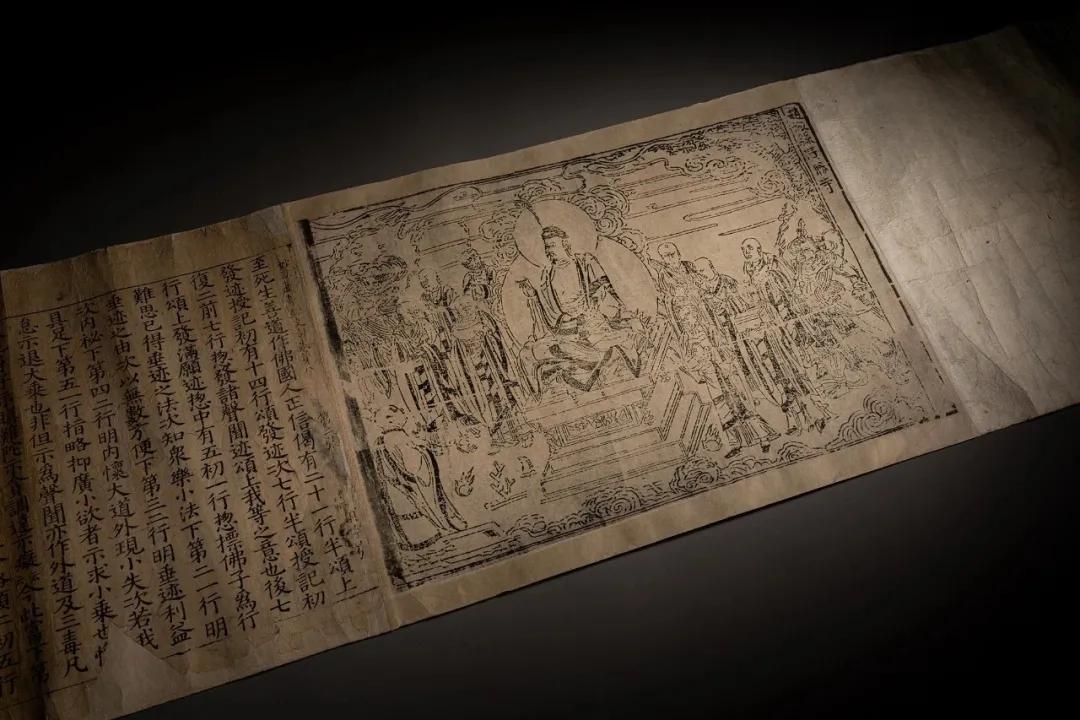 趙城縣廣勝寺
至死生喜道作佛國人正信偈有二十一行半頌上
發迹授記初有十四行頌發迹次七行半頌授記初
復二前七行揔發諸聲聞迹頌上我等之意也後七
行頌上發滿願迹揔中有五初一行揔標佛子為行
難思已得垂迹之法次知衆樂小法下第二一行明
垂迹之由次以無數方便下第三一行明垂迹利益
次內秘下第四二行明內懷大道外現小失次若我
具足下第五一行指略抑廣小欲者示求小乘
息示退大乘也非但示為聲聞亦作外道及三毒凡